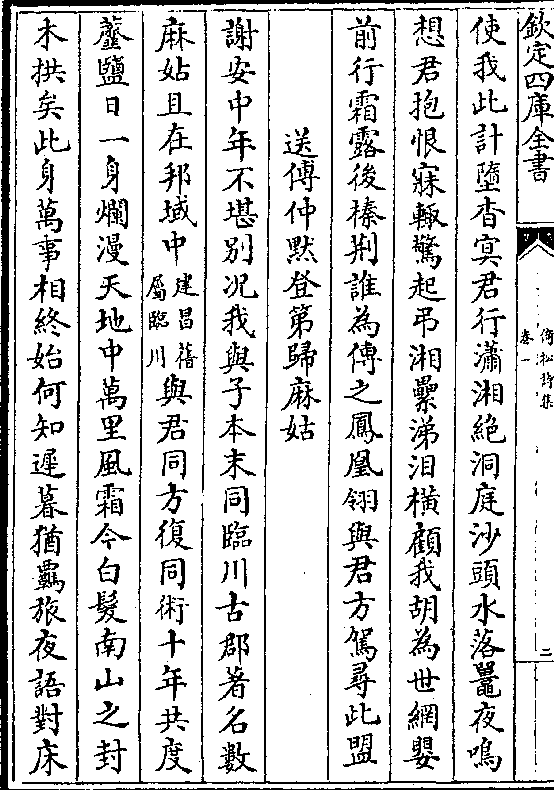 欽定四庫全書
倚松詩集
卷一
二
使我此計墮杳㝠君行瀟湘絶洞庭沙頭水落鼉夜鳴
想君抱恨寐輒驚起弔湘纍涕泪橫顧我胡為世網嬰
前行霜露後榛荆誰為傅之鳳凰翎與君方駕尋此盟
送傅仲黙登第歸麻姑
謝安中年不堪別况我與子本末同臨川古郡著名數
麻姑且在邦域中建昌舊屬臨川與君同方復同術十年共度
虀鹽日一身爛漫天地中萬里風霜今白髮南山之封
木拱矣此身萬事相終始何知遲暮猶羈旅夜語對床